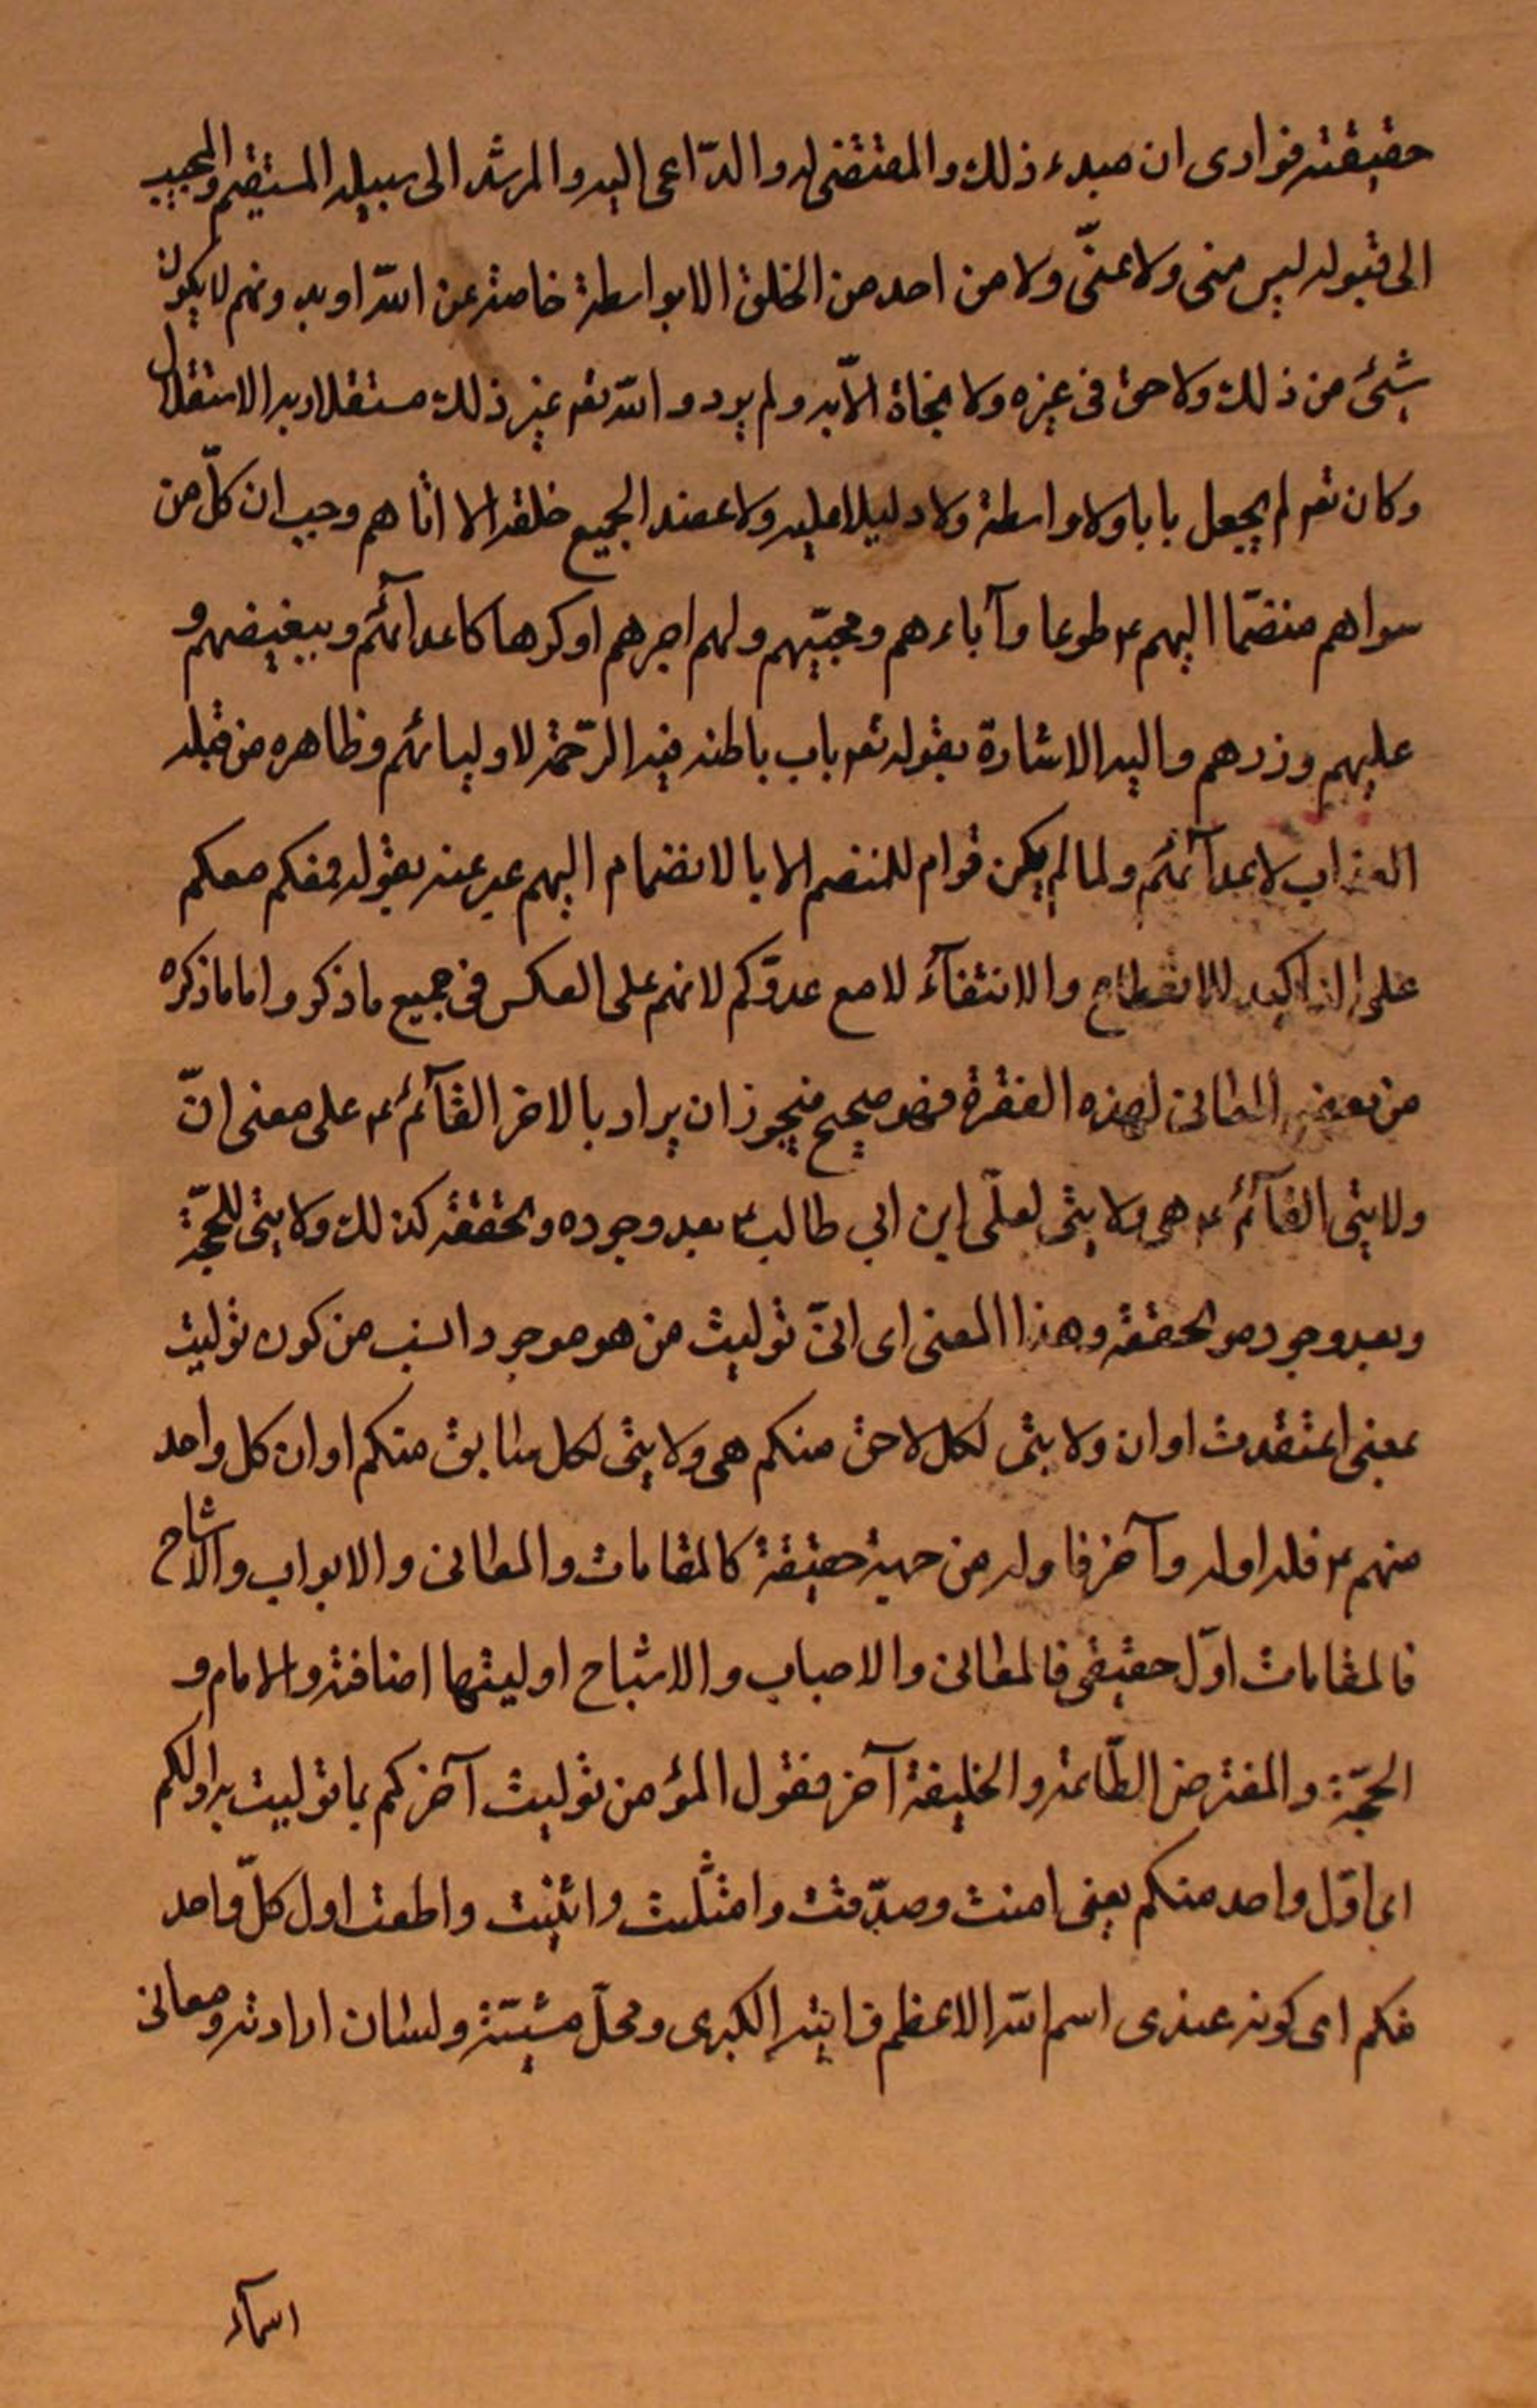 حقيقته فوادى ان مبدء ذلك والمقتضى له والدّاعى اليه والمرشد الى سبيله المستقيم والمجيب
الى قبوله ليس منى ولا عنّى ولا من احد من الخلق الا بواسطة خاصته عن الله او بدونهم لا يكون
شيئ من ذلك ولا حق فى غيره ولا نجاة الّا به ولم يرد والله تعم غير ذلك مستقلا وبه الاستقلال
وكان تعم لم يجعل بابا ولا واسطة ولا دليلا عليه ولا عضد الجميع خلقه الا اثاهم وجب ان كلّ من
سواهم منضمّا اليهم ء طوعا وآباءهم ومحبّيهم ولهم اجرهم او كرها كاعدائهم وببغيضهم و
عليهم وزرهم واليه الاشارة بقوله تعم باب باطنه فيه الرّحمة لاوليائهم وظاهره من قبله
العذاب لاعدآئهم ولما لم يكن قوام للمنضم الا بالانضمام اليهم عبر عنه بقوله فمفكم معكم
على التاكيد للانقطاع والانتفآء لا مع عدوّكم لانهم على العكس فى جميع ما ذكر واما ما ذكره
من بعض المعانى لهذه الفقرة فهو صحيح فيجوز ان يراد بالاخر القآئم ء على معنى انّ
ولايتى القآئم ء هى ولايتى لعلّى ابن ابي طالب ء بعد وجوده وتحققه كذلك ولايتى للحجّة
وبعد وجوده وتحققه وهذا المعنى اى انّ توليت من هو موجود انسب من كون توليت
بمعنى اعتقدت او ان ولايتى لكل لاحق منكم هى ولايتى لكل سابق منكم او ان كل واحد
منهم ء فله اوله وآخر فاوله من جهة حقيقة كالمقامات والمعانى والابواب والاشباح
فالمقامات اوّل حقيقى فالمعانى والاصباب والاشباح اوليتها اضافته والامام و
الحجّة والمفترض الطّاعته والخليفة آخر فقول المؤمن توليت آخركم بما توليت به اولكم
اى اوّل واحد منكم يعنى امنت وصدّقت وامتثلت واتيت واطعت اول كلّ واحد
منكم اى كونه عندى اسم الله الاعظم وايته الكبرى ومحلّ مشيّته ولسان ارادته ومعانى
اسمآء